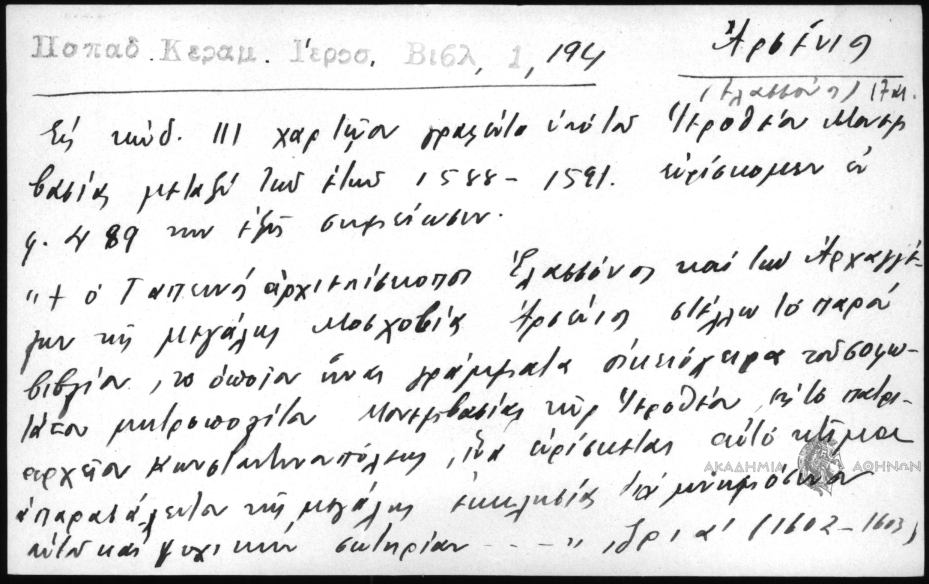 Παπαδ. Κεραμ. Ιεροσ. Βιβλ, 1, 194
Ἀρσένιος
(Ἐλασσόνος) 17 αι.
Εἰς κώδ. 111 χαρτῷον γραφέντα ὑπὸ τοῦ Ἱεροθέου Μονεμ
βασίας μεταξὺ τῶν ἐτῶν 1588 - 1591. εὑρίσκομεν ἐν
φ. 489 την ἑξῆς σημείωσιν.
"+ ὁ Ταπεινὸς ἀρχιεπίσκοπος Ἐλασσόνος καὶ τῶν Ἀρχαγγέ-
λων τῆς μεγάλης Μοσχοβίας Ἀρσένιος στέλλω τὸ παρὸν
βιβλίον, τὸ ὁποῖον εἶναι γράμματα οἰκειόχειρα τοῦ σοφω-
τάτου μητροπολίτου Μονεμβασίας κὺρ Ἱεροθέου, εἰς τὸ πατρι-
αρχεῖον Κωνσταντινουπόλεως, ἵνα εὑρίσκεται αὐτὸ κτῆμα
ἀπαρασάλευτον τῆς μεγάλης ἐκκλησίας διὰ μνημόσυνον
αὐτοῦ καὶ ψυχικὴν σωτηρίαν - - - - " , ζριαʹ (1602 - 1603)
ΑΚΑΔΗΜΙΑ ΑΘΗΝΩΝ